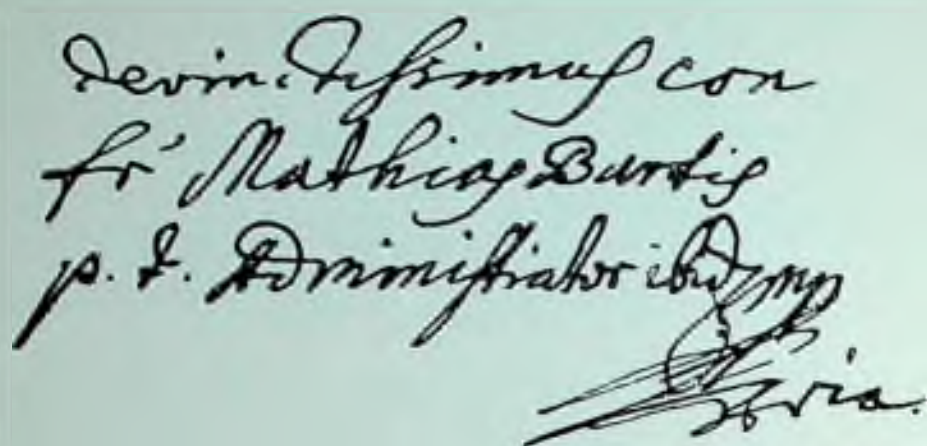 devinctissimus con
fr' Mathias Burtis
p. t. Administrator ibid mp
pria.